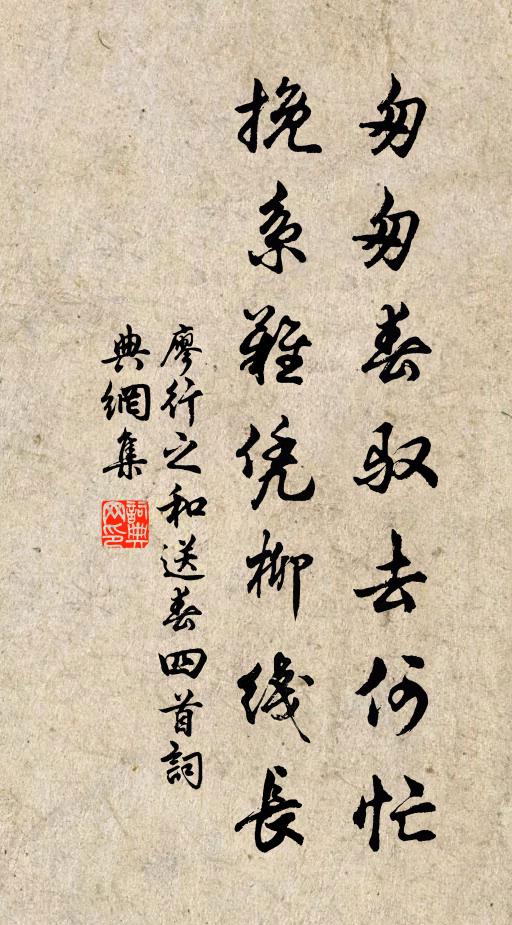 匆匆春驭去何忙
挽系難凭柳线長
廖行之和送春四首詞
典網集
詞典網印